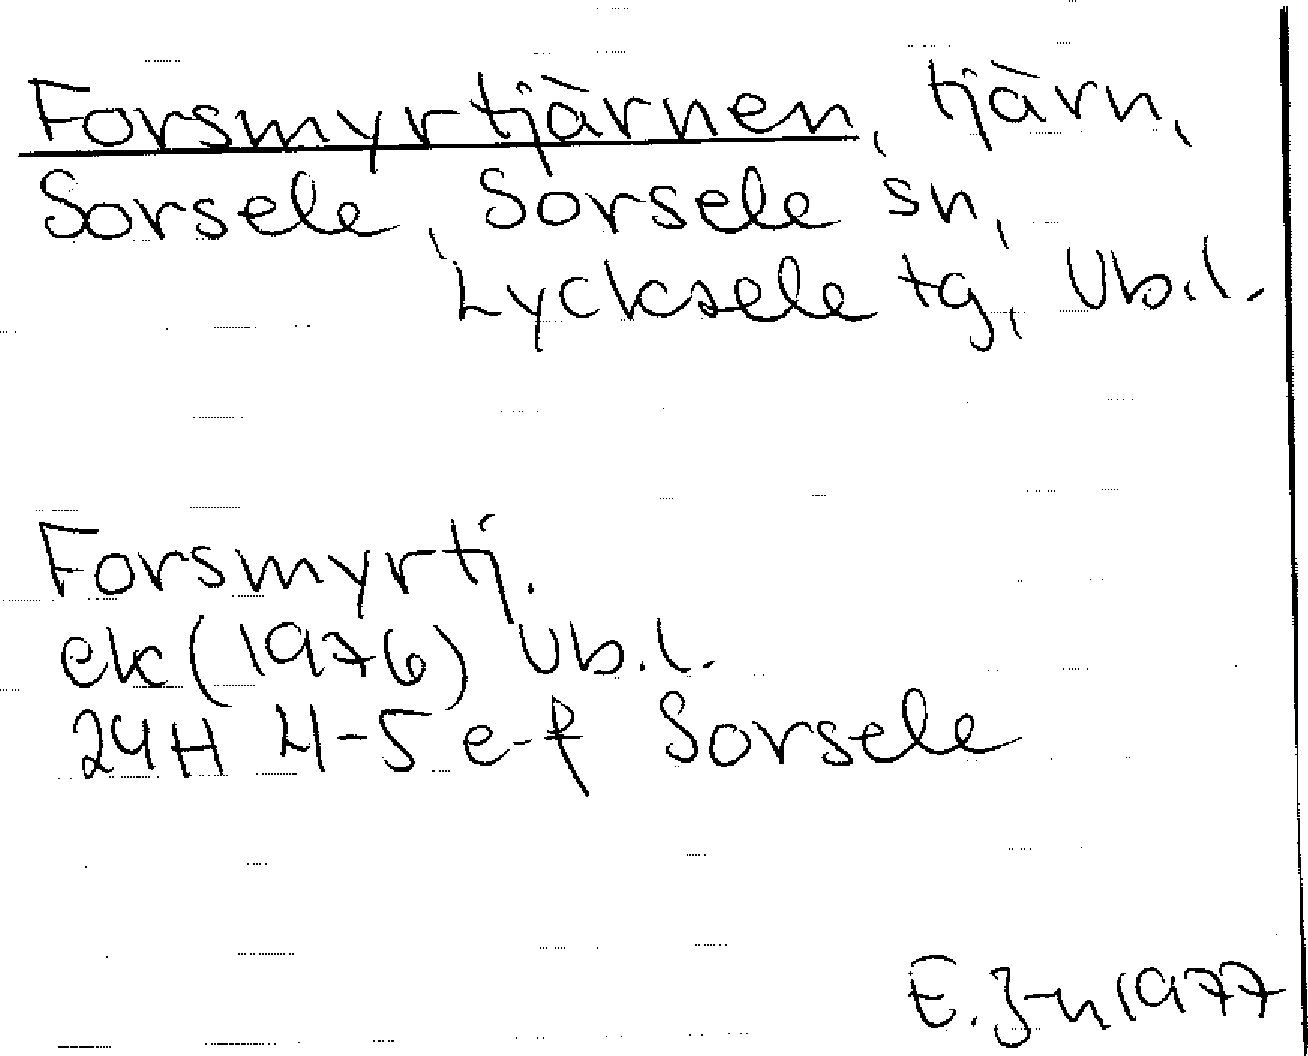 Forsmyrtjärnen, tjärn,
Sorsele, Sorsele sn,
Lycksele tg, Vb.l.
Forsmyrtj.
ek (1976) Vb.l.
24H 4-5 e-f Sorsele
E. J-n 1977